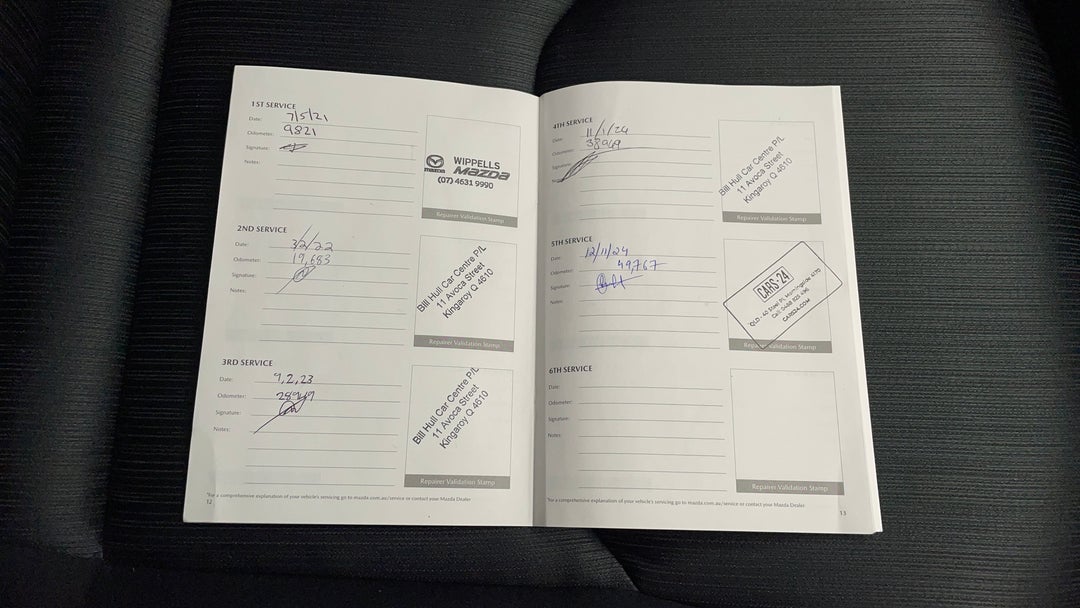 1ST SERVICE
Date: 7/5/21
Odometer: 9821
Signature:
Notes:
WIPPELLS
mazda
(07) 4631 9990
Repairer Validation Stamp
2ND SERVICE
Date: 3/2/22
Odometer: 19,683
Signature:
Notes:
Bill Hull Car Centre P/L
11 Avoca Street
Kingaroy Q 4610
Repairer Validation Stamp
3RD SERVICE
Date: 9,2,23
Odometer:
Signature:
Notes:
Bill Hull Car Centre P/L
11 Avoca Street
Kingaroy Q 4610
Repairer Validation Stamp
*For a comprehensive explanation of your vehicle's servicing go to mazda.com.au/service or contact your Mazda Dealer
12
4TH SERVICE
Date: 11/1/24
Odometer: 38969
Signature:
Bill Hull Car Centre P/L
11 Avoca Street
Kingaroy Q 4610
Repairer Validation Stamp
5TH SERVICE
Date: 12/11/24
Odometer: 49,767
Signature:
Notes:
CARS·24
QLD - 40 Steel Pl, Morningside 4170
CARS24.COM
Validation Stamp
6TH SERVICE
Date:
Odometer:
Signature:
Notes:
Repairer Validation Stamp
*For a comprehensive explanation of your vehicle's servicing go to mazda.com.au/service or contact your Mazda Dealer
13